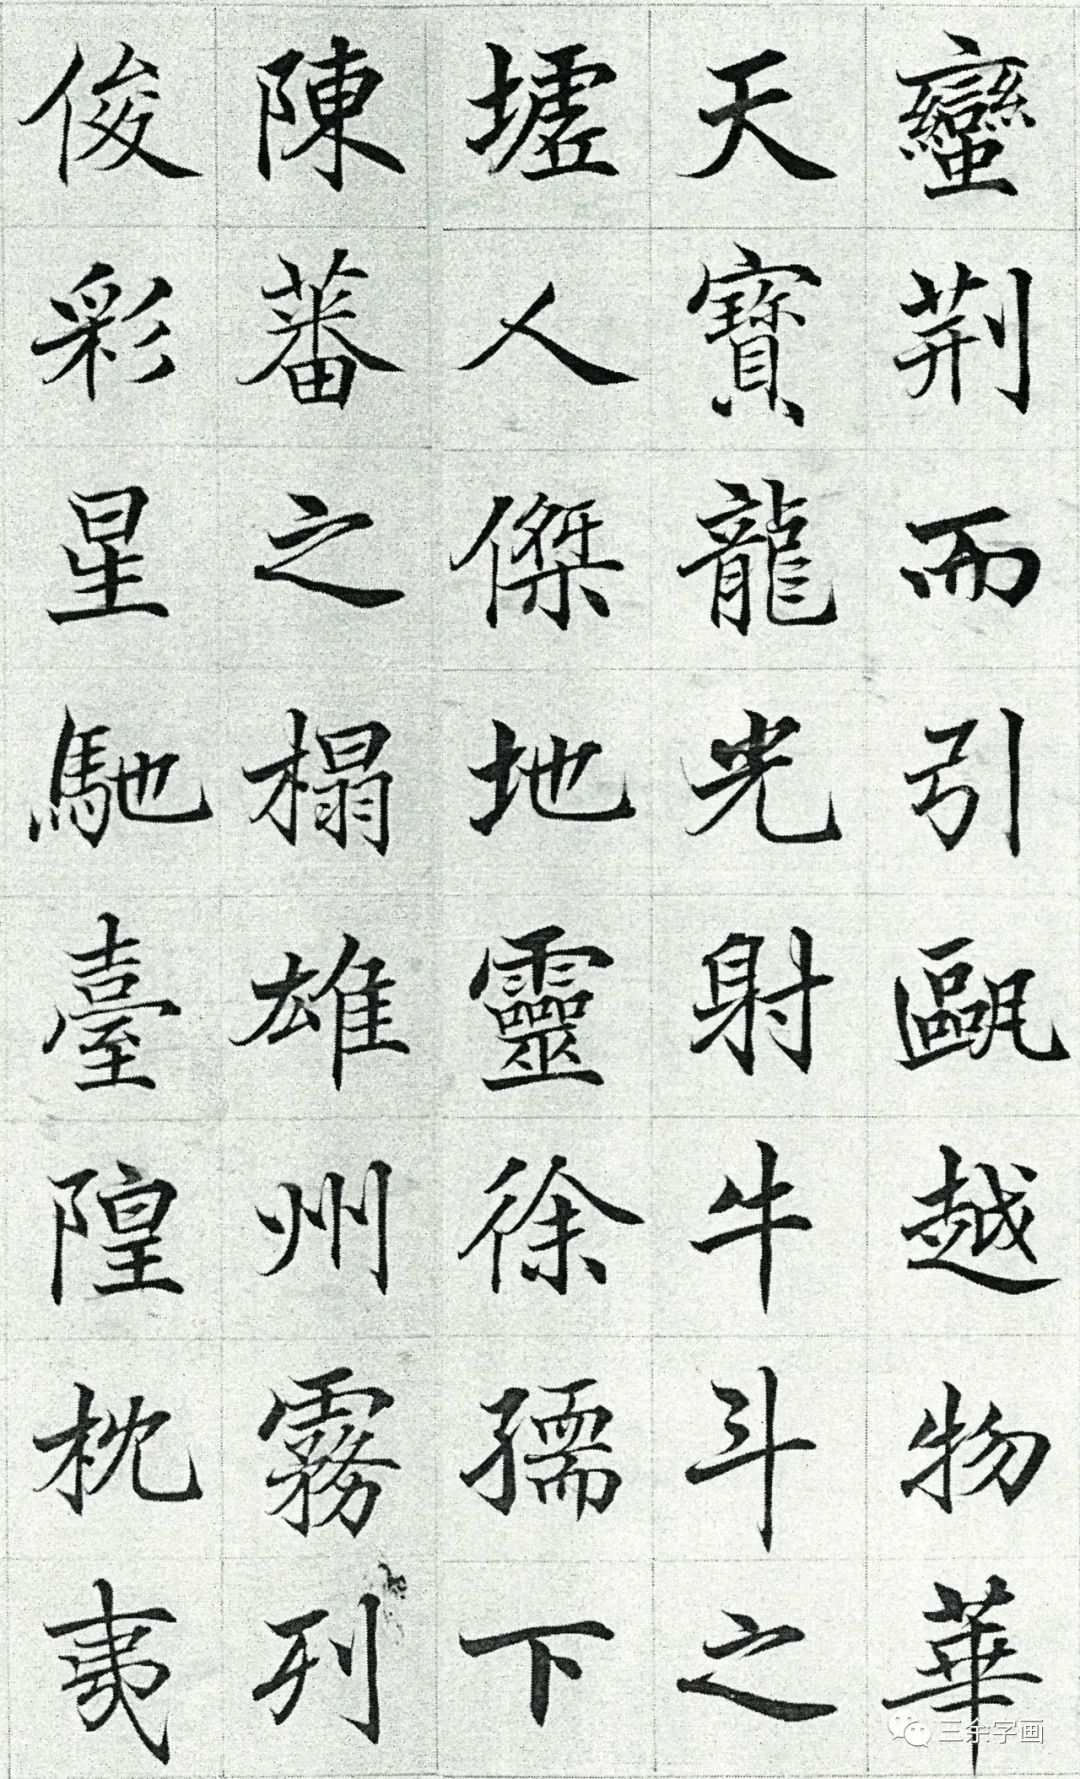 蠻荆而引甌越物華
天寶龍光射牛斗之
墟人傑地靈徐孺下
陳蕃之榻雄州霧列
俊彩星馳臺隍枕夷
三余字画